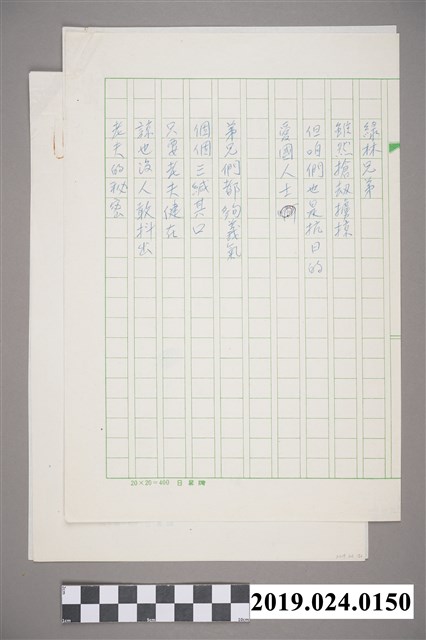 綠林兄弟
雖然搶劫擄掠
但咱們也是抗日的
愛國人士
弟兄們都夠義氣
個個三緘其口
只要老夫健在
諒也沒人敢抖出
老夫的秘密
20×20=400 日星牌
2019.024.0150